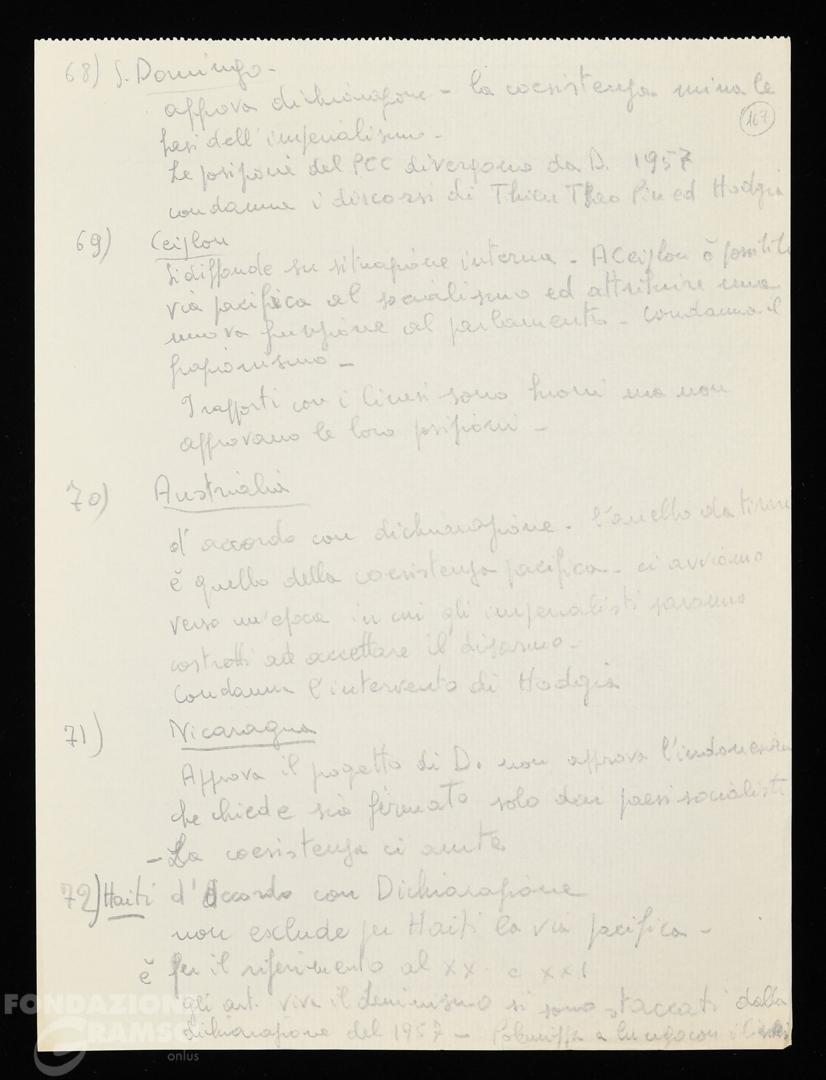 68) S. Domingo -
approva dichiarazione - la coesistenza mina le
167
basi dell'imperialismo -
Le posizioni del PCC divergono da D. 1957
condanna i discorsi di Thieu Thao Pin ed Hodgia
69) Ceijlon
Si diffonde su situazione interna - A Ceijlon è possibile
via pacifica al socialismo ed attribuire una
nuova funzione al parlamento - condanna il
frazionismo -
I rapporti con i Cinesi sono buoni ma non
approvano le loro posizioni -
70) Australia
d'accordo con dichiarazione - l'anello da tirare
è quello della coesistenza pacifica - ci avviamo
verso un'epoca in cui gli imperialisti saranno
costretti ad accettare il disarmo -
condanna l'intervento di Hodgia
71) Nicaragua
Approva il progetto di D. non approva l'indonesiano
che chiede sia firmato solo dai paesi socialisti
- La coesistenza ci aiuta
72) Haiti d'accordo con Dichiarazione
non esclude per Haiti la via pacifica -
è per il riferimento al XX e XXI
gli art. viva il leninismo si sono staccati dalla
dichiarazione del 1957 - Polemizza a lungo con i
FONDAZIONE
GRAMSCI
onlus